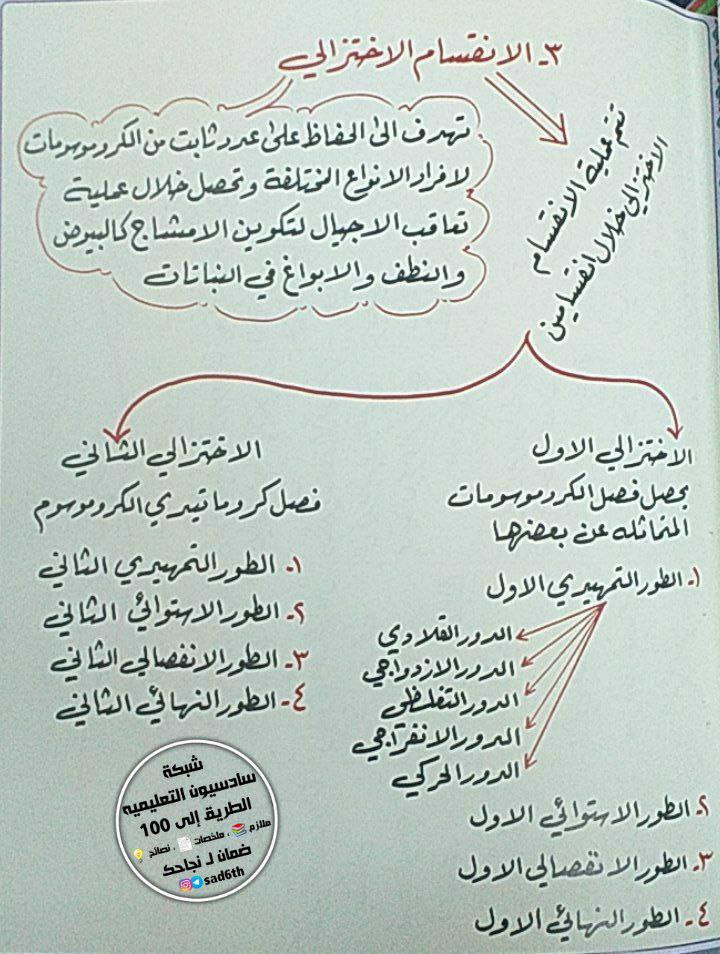 ٣- الانقسام الاختزالي
تهدف الى الحفاظ على عدد ثابت من الكروموسومات
لافراد الانواع المختلفة وتحصل خلال عملية
تعاقب الاجيال لتكوين الامشاج كالبيوض
والنطف والابواغ في النباتات
تتم عملية الانقسام
الاختزالي خلال انقسامين
الاختزالي الاول
يحصل فصل الكروموسومات
المتماثله عن بعضها
١- الطور التمهيدي الاول
الدور القلادي
الدور الازدواجي
الدور التغلظي
الدور الانفراجي
الدور الحركي
٢- الطور الاستوائي الاول
٣- الطور الانفصالي الاول
٤- الطور النهائي الاول
الاختزالي الثاني
فصل كروماتيدي الكروموسوم
١- الطور التمهيدي الثاني
٢- الطور الاستوائي الثاني
٣- الطور الانفصالي الثاني
٤- الطور النهائي الثاني
شبكة
سادسيون التعليميه
الطريق إلى 100
ملازم 📚 ، ملخصات 📄 ، نصائح 💡
ضمان لـ نجاحك
sad6th